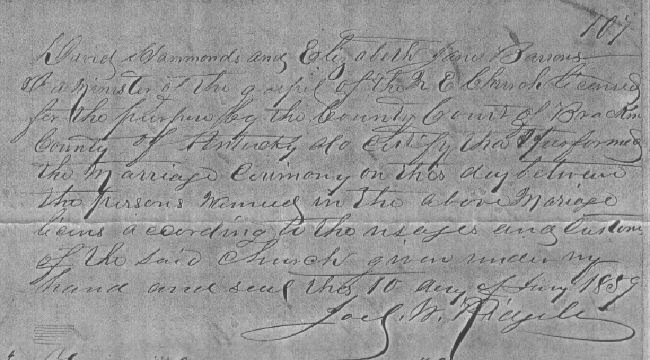 107
David Hammonds and Elizabeth Jane Parsons
A minister of the gospil of the M E Church licenced
for the purpose by the County Court of Bracken
County of Kentucky do certify that I performed
the Marriage Cerimony on this day between
the persons Named in the above Mariage
being acording to the usages and Custom
of the said Church given under my
hand and seal this 10 day of 1859
Joel W.